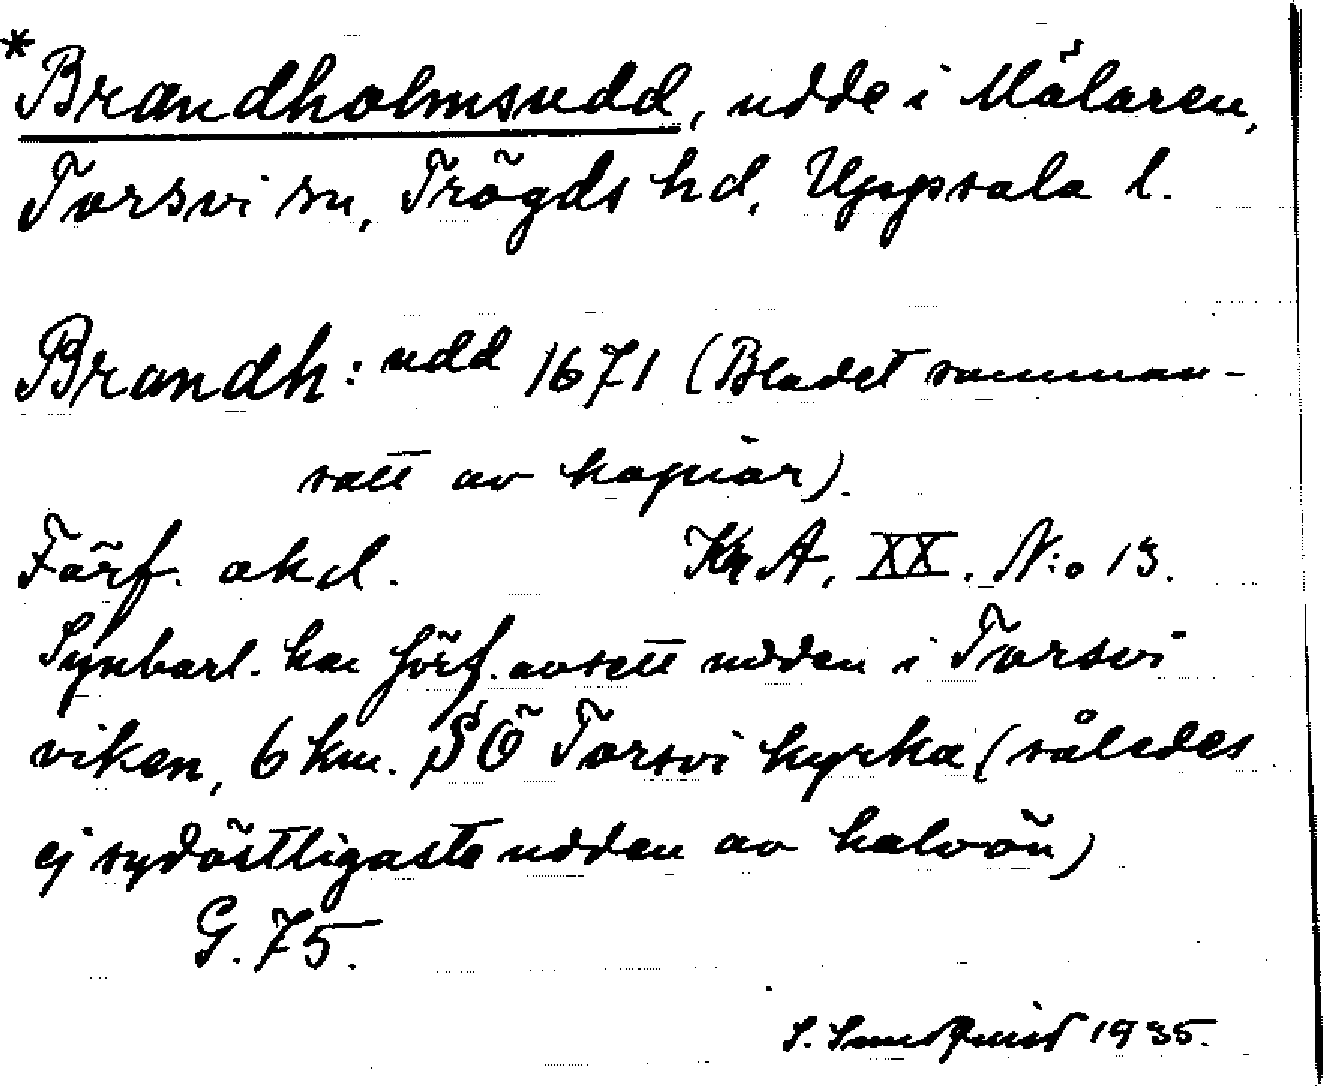 *Brandholmsudd, udde i Mälaren,
Torsvi sn, Trögds hd, Uppsala l.
Brandh: udd 1671 (Bladet samman-
satt av kopior).
Förf. okd. Kr A, XX. N:o 13.
Synbarl. har förf. avsett udden i Torsvi
viken, 6 km. SÖ Torsvi kyrka (således
ej sydöstligaste udden av halvön)
G. 75.
S. 1935.